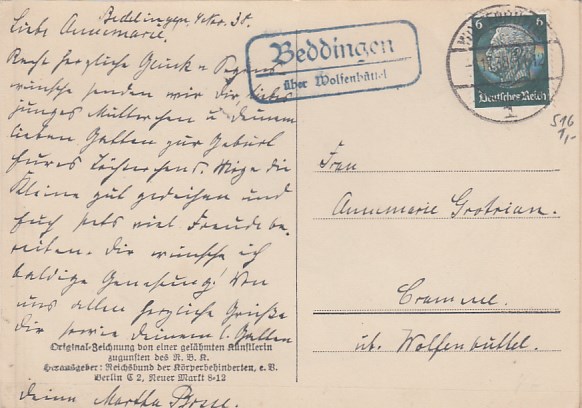 Beddingen, 4. 38.
Liebe Annemarie,
Recht herzliche Glück u. Segens
wünsche senden wir Dir liebes
junges Mütterchen u Deinem
lieben Gatten zur Geburt
Eures Töchterchens. Möge die
Kleine gut gedeihen und
Euch stets viel Freude be,
reiten. Dir wünsche ich
baldige Genesung! Von
uns allen herzliche Grüße
Dir sowie Deinem l. Gatten
Original-Zeichnung von einer gelähmten Künstlerin
zugunsten des R. B. K.
Herausgeber: Reichsbund der Körperbehinderten, e. V.
Berlin C 2, Neuer Markt 8-12
deine Martha
Beddingen
über Wolfenbüttel
6 6
Deutsches Reich
516
1,-
Frau
Annemarie Grotrian.
Cramme.
üb. Wolfenbüttel.